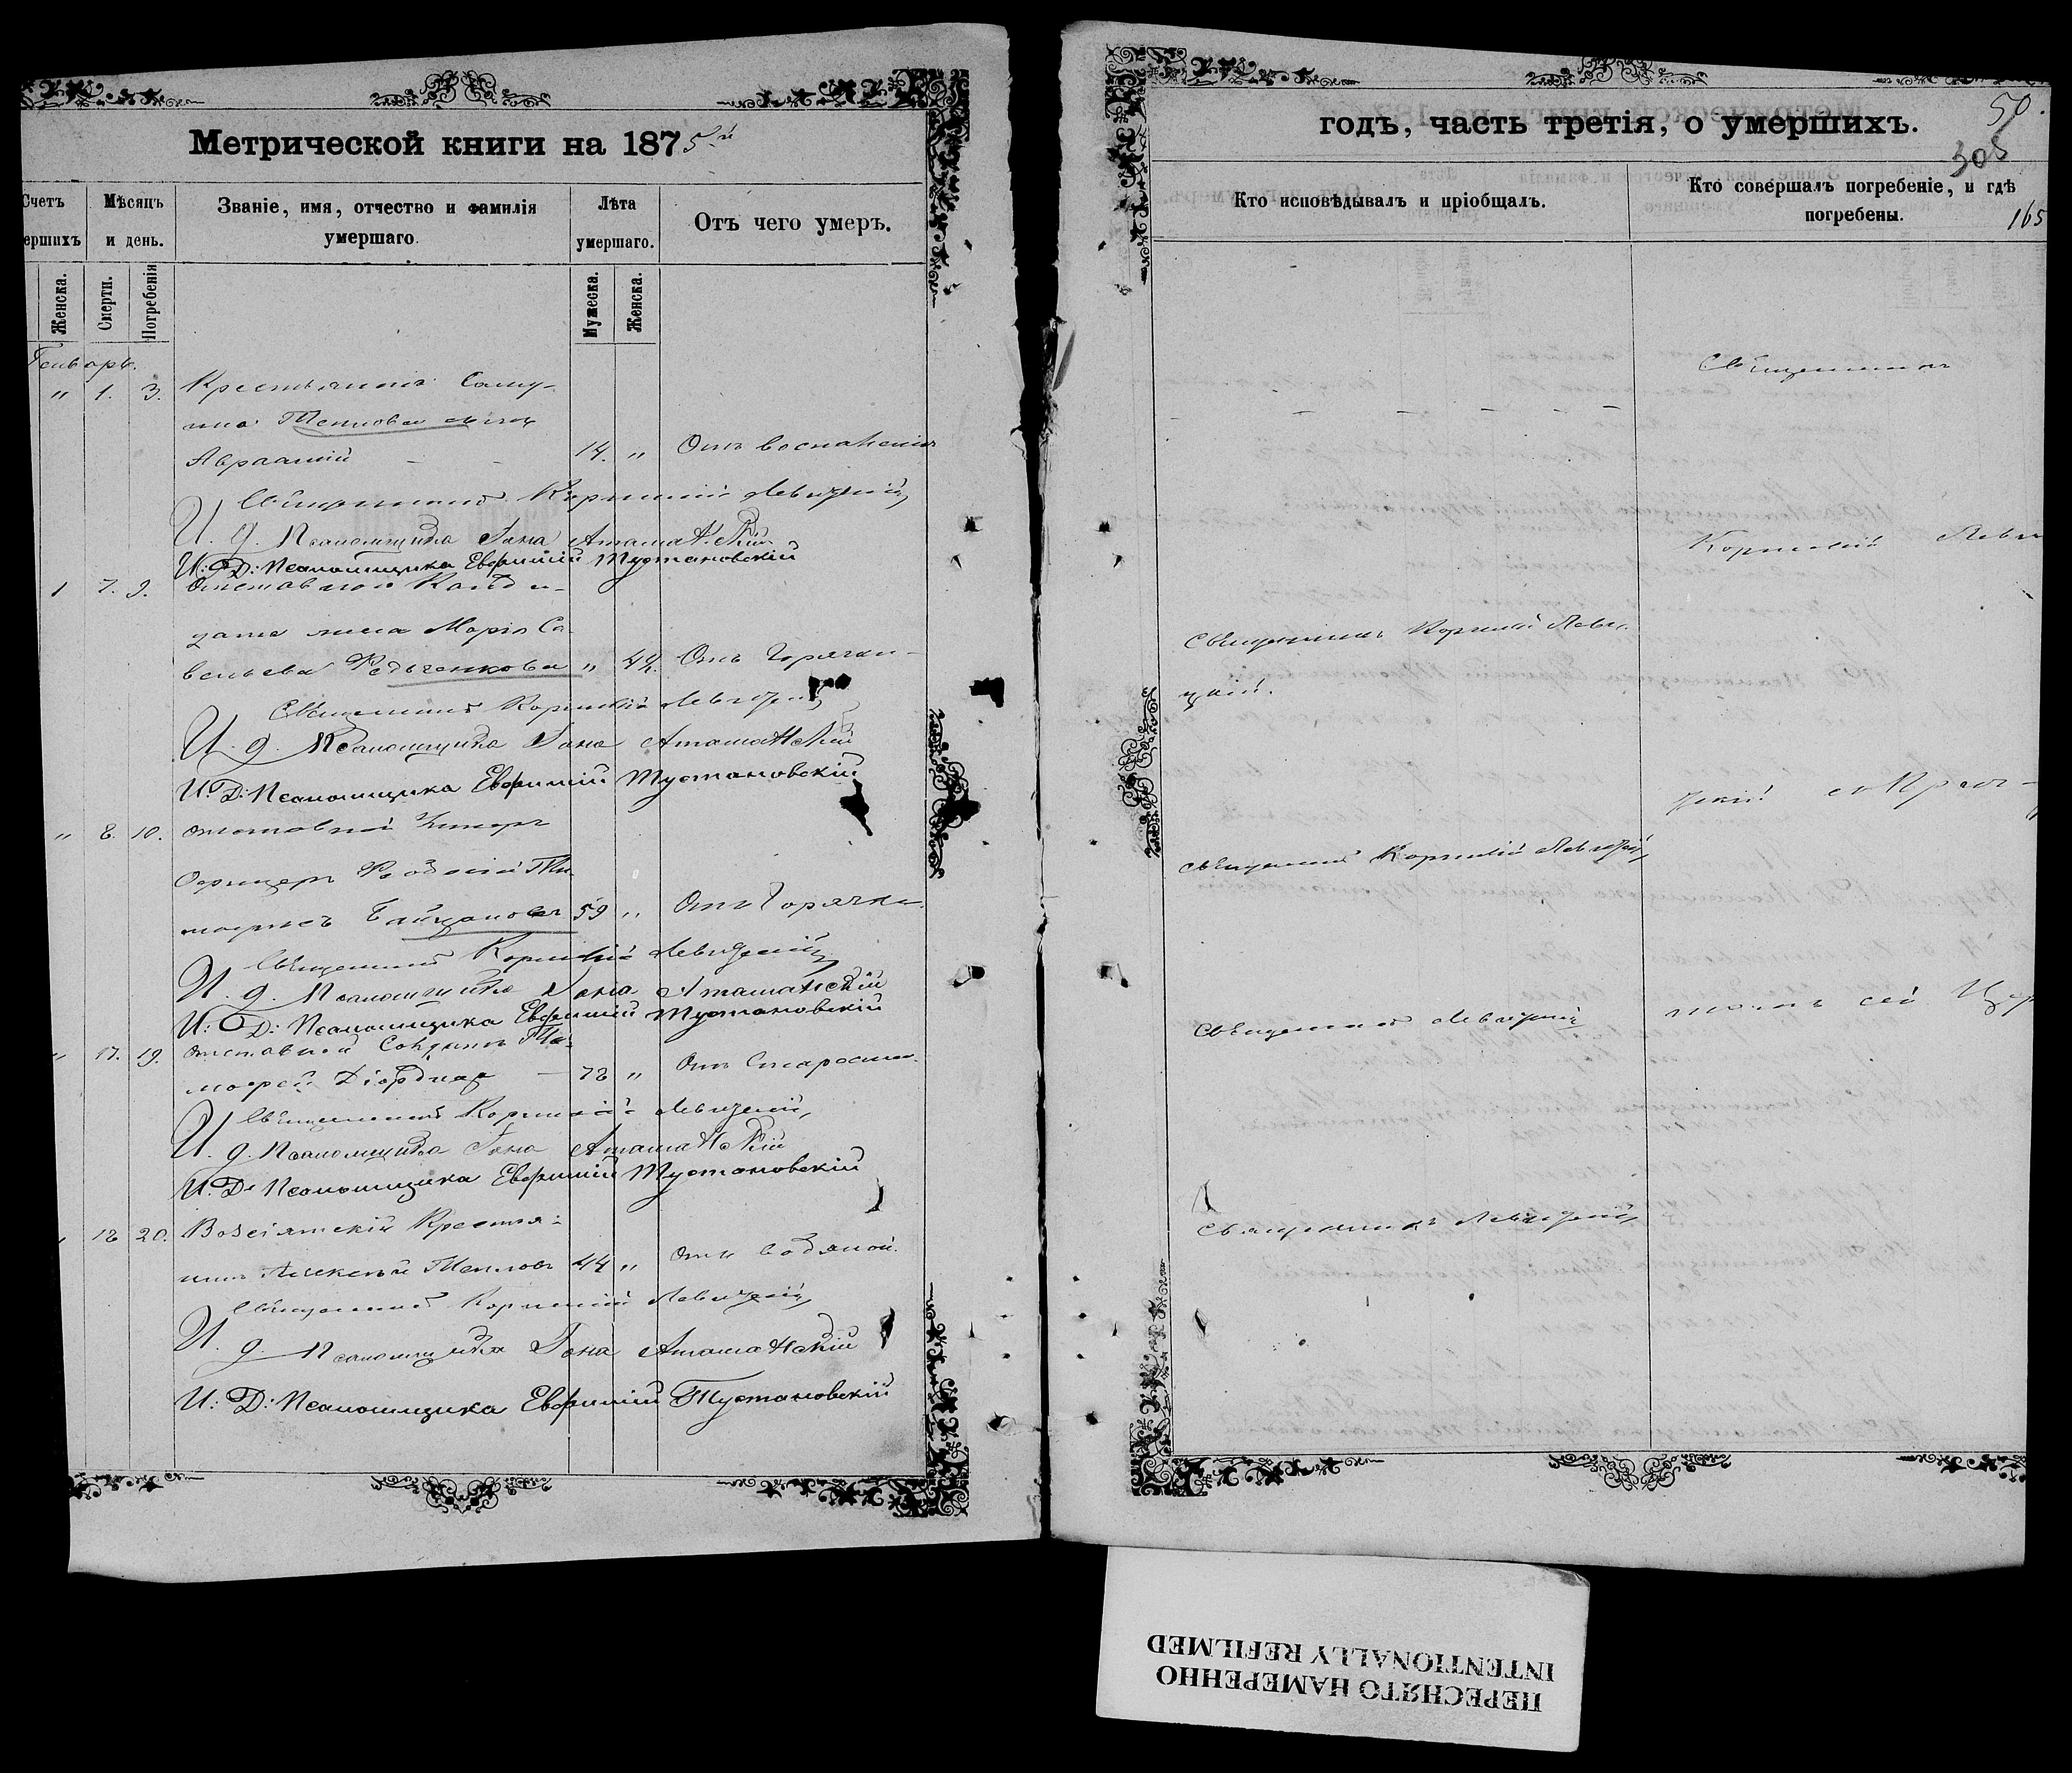 Метрической книги на 1875й
Счетъ
ершихъ
Мѣсяцъ
и день.
Званіе, имя, отчество и фамилія
умершаго.
Лѣта
умершаго.
Отъ чего умеръ.
Женска.
Смерти.
Погребенія
Мужеска.
Женска.
Генварь.
" 1. 3. Крестьянина
Теплова сынъ
Авраамій - - 14. " Отъ воспаленія
Священникъ Корнилій Левицкій
И. д. Псаломщика Іона Аташанскій
И: Д: Псаломщика Евфимій Тустановскій
1 7. 9. Отставного Канди-
дата жена Марія Са-
вельева Редьченкова " 44. Отъ Горячки
Священникъ Корнилій Левицкій
И. д. Псаломщика Іона Аташанскій
И: Д: Псаломщика Евфимій Тустановскій
" 8. 10. отставной Унтеръ
Офицеръ Ти-
мофеевъ 59 " Отъ Горячки.
Священникъ Корнилій Левицкій
И. д. Псаломщика Іона Аташанскій
И: Д: Псаломщика Евфимій Тустановскій
" 17. 19. отставной Ти-
мофей Діордица - 78 " Отъ Старости.
Священникъ Корнилій Левицкій
И. д. Псаломщика Іона Аташанскій
И: Д: Псаломщика Евфимій Тустановскій
18 20. Возсіятскій Крестья-
нинъ Алексѣй Тепловъ 44 " Отъ водяной.
Священникъ Корнилій Левицкій
И. д. Псаломщика Іона Аташанскій
И: Д: Псаломщика Евфимій Тустановскій
годъ, часть третія, о умершихъ.
50.
305
165
Кто исповѣдывалъ и пріобщалъ.
Кто совершалъ погребеніе, и гдѣ
погребены.
Священникъ
Корнилій Леви
Священникъ Корнилій Леви-
цкій.
цкій
Священникъ Корнилій Левицкій
Священникъ Левицкій
Священникъ Левицкій
ПЕРЕСНЯТО НАМЕРЕННО
INTENTIONALLY REFILMED